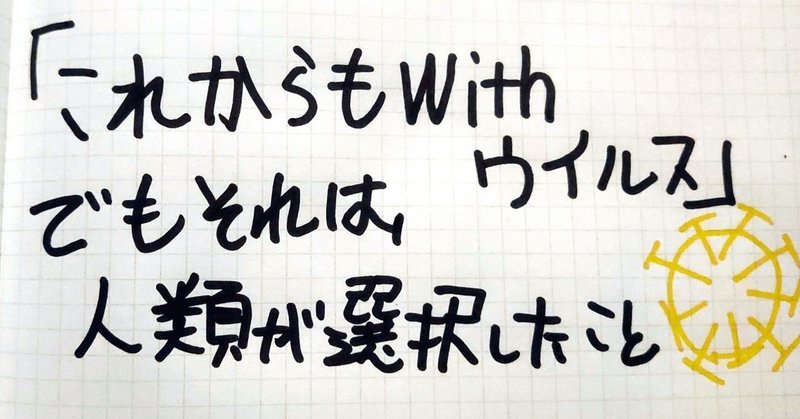 「これからもWith
ウイルス」
でもそれは,
人類が選択したこと